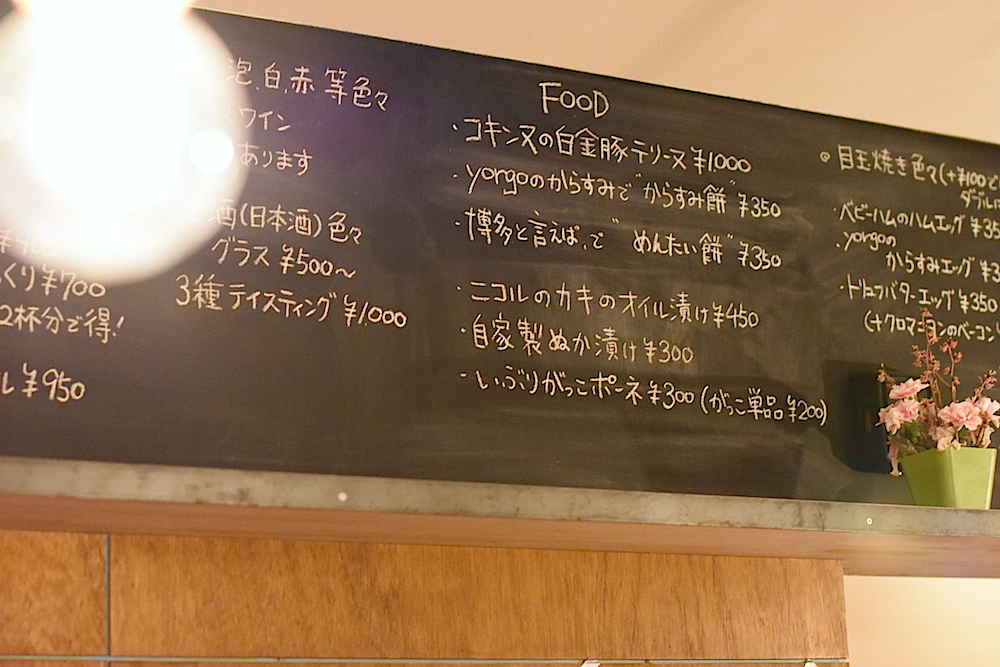 泡、白、赤 等色々
ワイン
あります
酒(日本酒)色々
グラス ¥500〜
3種 テイスティング ¥1.000
くり ¥700
2杯分で得!
ル ¥950
FOOD
・コキンヌの白金豚テリーヌ ¥1.000
・yorgoのからすみで"からすみ餅" ¥350
・博多と言えば、で"めんたい餅" ¥350
・ニコルのカキのオイル漬け ¥450
・自家製ぬか漬け ¥300
・いぶりがっこポーネ ¥300 (がっこ単品 ¥200)
◎目玉焼き色々(+¥100で
ダブルに
・ベビーハムのハムエッグ ¥35
・yorgoの
からすみエッグ ¥3
・トリュフバターエッグ ¥350
(+クロマニヨンのベーコン